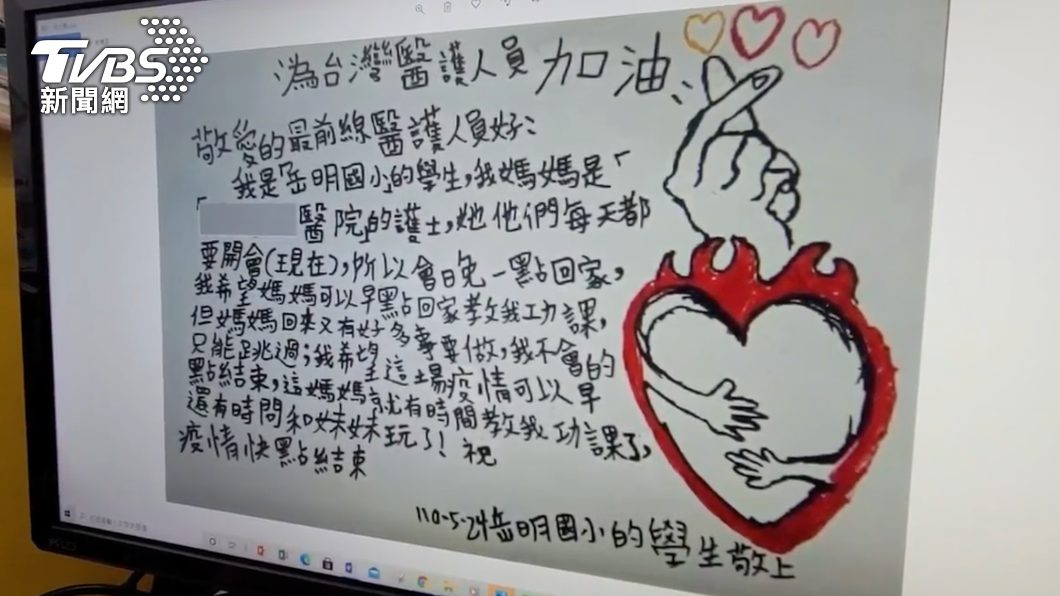 TVBS
新聞網
為台灣醫護人員加油
敬愛的最前線醫護人員好:
我是「岳明國小」的學生,我媽媽是「
「醫院」的護士,她他們每天都
要開會(現在),所以會晚一點回家,
我希望媽媽可以早點回家教我功課,
但媽媽回來又有好多事要做,我不會的
只能跳過;我希望這場疫情可以早
點結束,這媽媽就有時間教我功課了,
還有時間和妹妹玩了!祝
疫情快點結束
110-5-24岳明國小的學生敬上